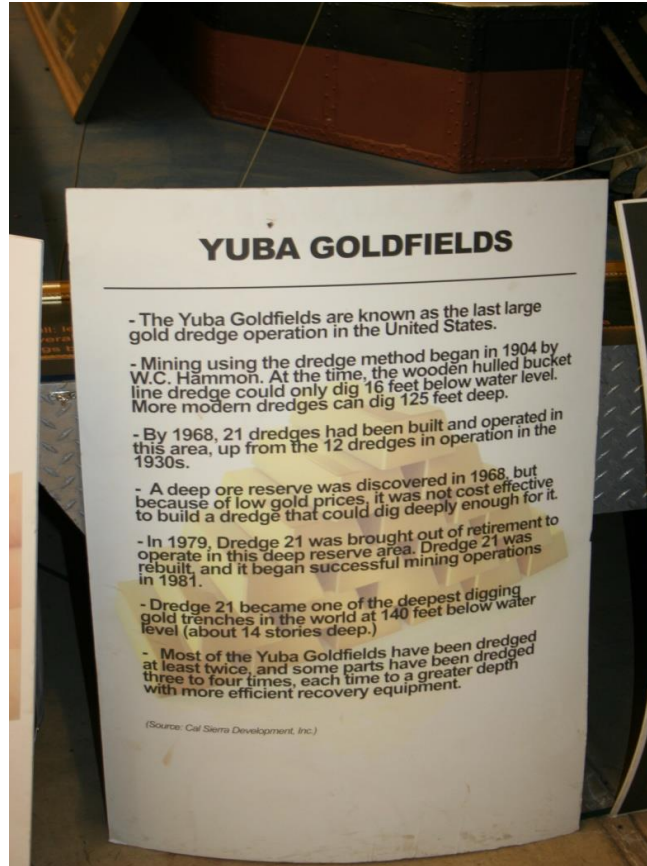 YUBA GOLDFIELDS
- The Yuba Goldfields are known as the last large
gold dredge operation in the United States.
- Mining using the dredge method began in 1904 by
W.C. Hammon. At the time, the wooden hulled bucket
line dredge could only dig 16 feet below water level.
More modern dredges can dig 125 feet deep.
- By 1968, 21 dredges had been built and operated in
this area, up from the 12 dredges in operation in the
1930s.
- A deep ore reserve was discovered in 1968, but
because of low gold prices, it was not cost effective
to build a dredge that could dig deeply enough for it.
- In 1979, Dredge 21 was brought out of retirement to
operate in this deep reserve area. Dredge 21 was
rebuilt, and it began successful mining operations
in 1981.
- Dredge 21 became one of the deepest digging
gold trenches in the world at 140 feet below water
level (about 14 stories deep.)
- Most of the Yuba Goldfields have been dredged
at least twice, and some parts have been dredged
three to four times, each time to a greater depth
with more efficient recovery equipment.
(Source: Cal Sierra Development, Inc.)